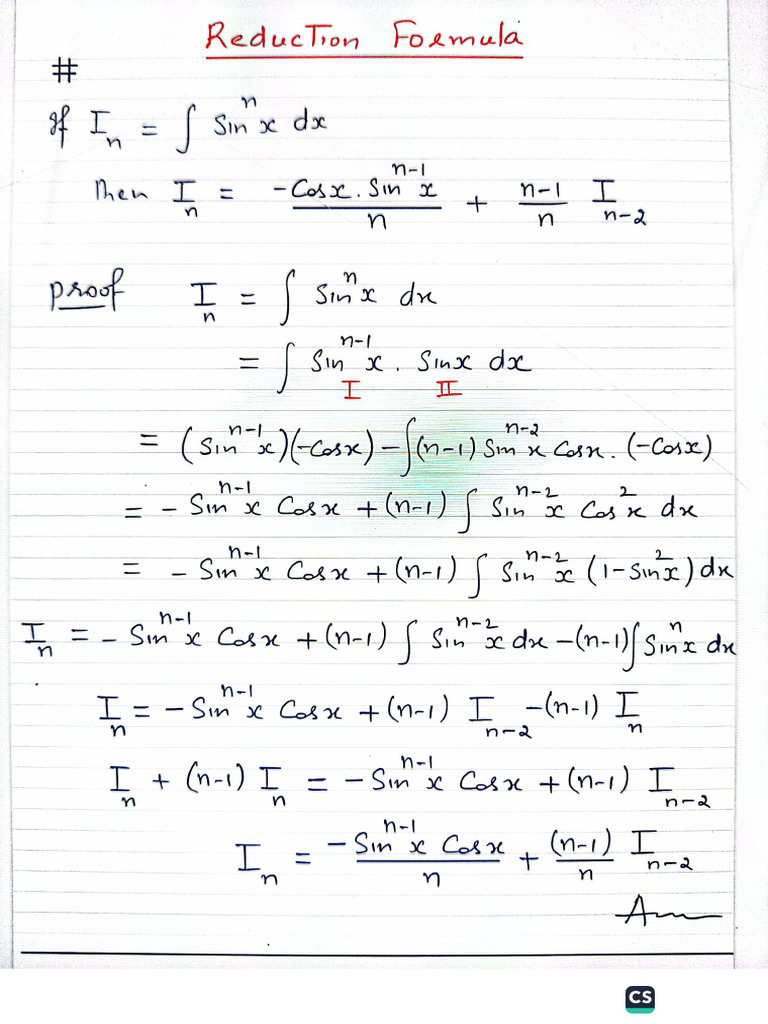 Reduction Formula
#
If Iₙ = ∫ Sinⁿx dx
Then Iₙ = -Cosx . Sinⁿ⁻¹x / n + n-1 / n Iₙ₋₂
Proof Iₙ = ∫ Sinⁿx dx
= ∫ Sinⁿ⁻¹x . Sinx dx
I II
= (Sinⁿ⁻¹x)(-Cosx) - ∫(n-1) Sinⁿ⁻²x Cosx . (-Cosx)
= - Sinⁿ⁻¹x Cosx + (n-1) ∫ Sinⁿ⁻²x Cos²x dx
= - Sinⁿ⁻¹x Cosx + (n-1) ∫ Sinⁿ⁻²x (1-Sin²x) dx
Iₙ = - Sinⁿ⁻¹x Cosx + (n-1) ∫ Sinⁿ⁻²x dx - (n-1) ∫ Sinⁿx dx
Iₙ = - Sinⁿ⁻¹x Cosx + (n-1) Iₙ₋₂ - (n-1) Iₙ
Iₙ + (n-1) Iₙ = - Sinⁿ⁻¹x Cosx + (n-1) Iₙ₋₂
Iₙ = - Sinⁿ⁻¹x Cosx / n + (n-1) / n Iₙ₋₂
CS